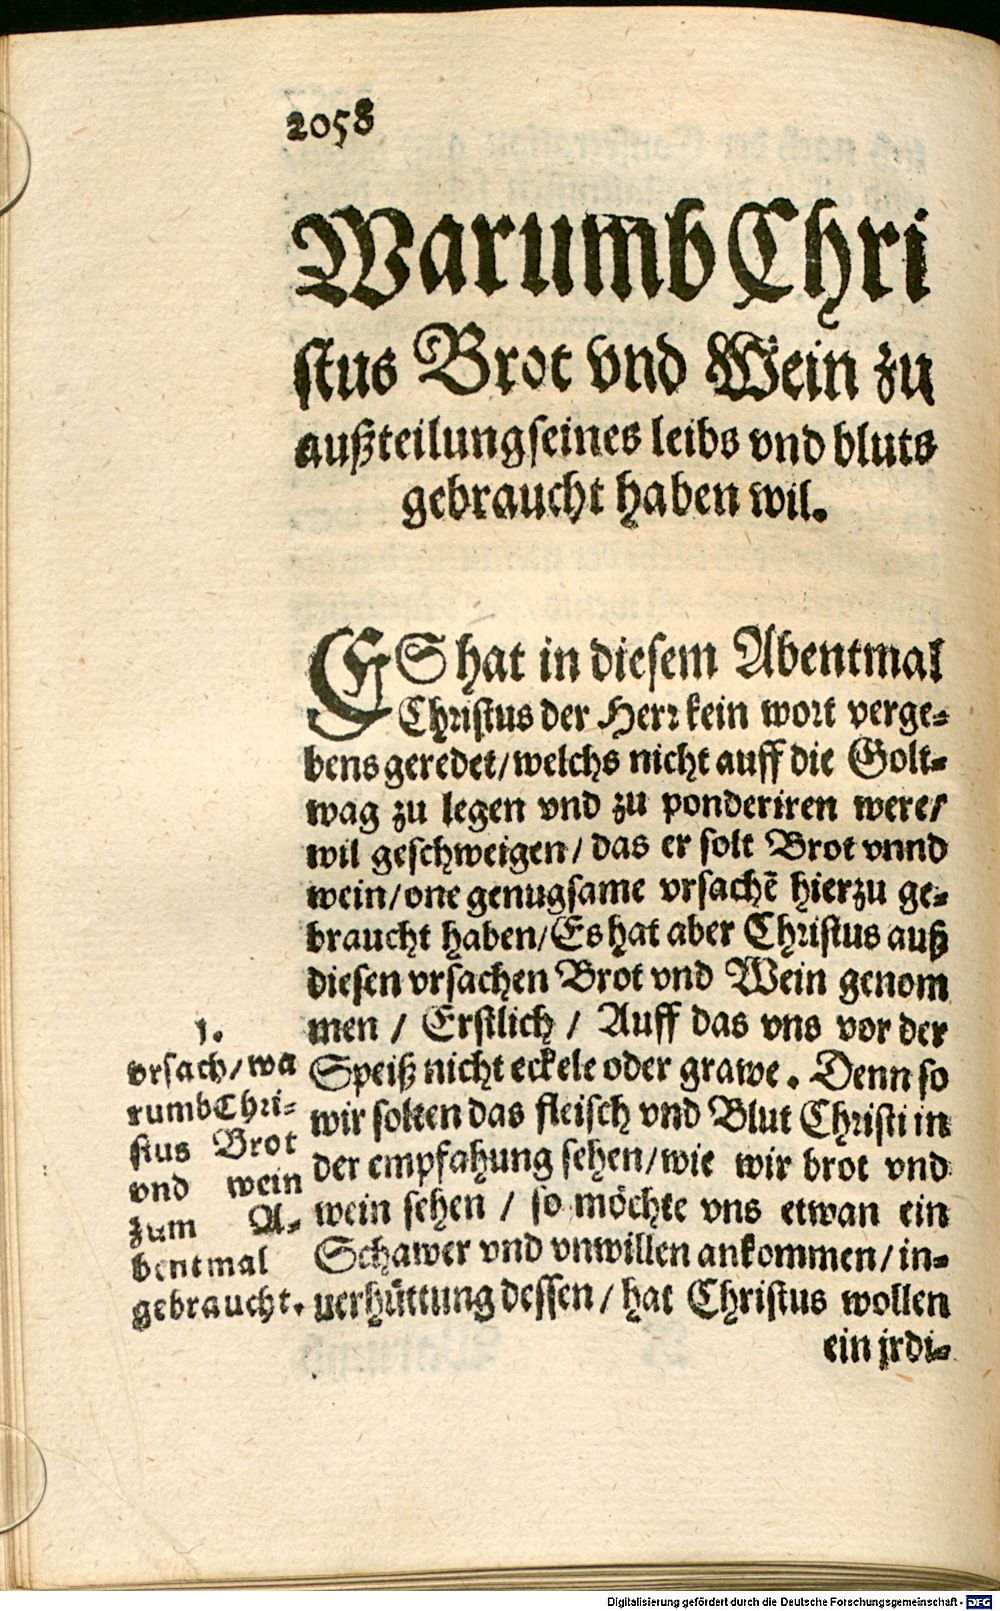 2058
Warumb Chri
stus Brot vnd Wein zu
außteilung seines leibs vnd bluts
gebraucht haben wil.
ES hat in diesem Abentmal
Christus der Herr kein wort verge-
bens geredet/welchs nicht auff die Golt-
wag zu legen vnd zu ponderiren were/
wil geschweigen/das er solt Brot vnnd
wein/one genugsame vrsachē hierzu ge-
braucht haben/Es hat aber Christus auß
diesen vrsachen Brot vnd Wein genom
men / Erstlich / Auff das vns vor der
Speiß nicht eckele oder grawe. Denn so
wir solten das fleisch vnd Blut Christi in
der empfahung sehen/wie wir brot vnd
wein sehen / so möchte vns etwan ein
Schawer vnd vnwillen ankommen/in-
uerhüttung dessen/hat Christus wollen
ein jrdi-
1.
vrsach/wa
rumb Chri-
stus Brot
vnd wein
zum A-
bentmal
gebraucht.
Digitalisierung gefördert durch die Deutsche Forschungsgemeinschaft - DFG